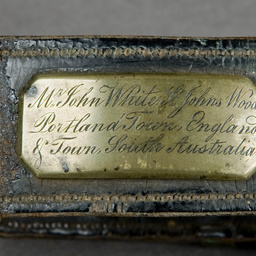 Mr John White St Johns Wood
Portland Town, England
& Town, South Australia